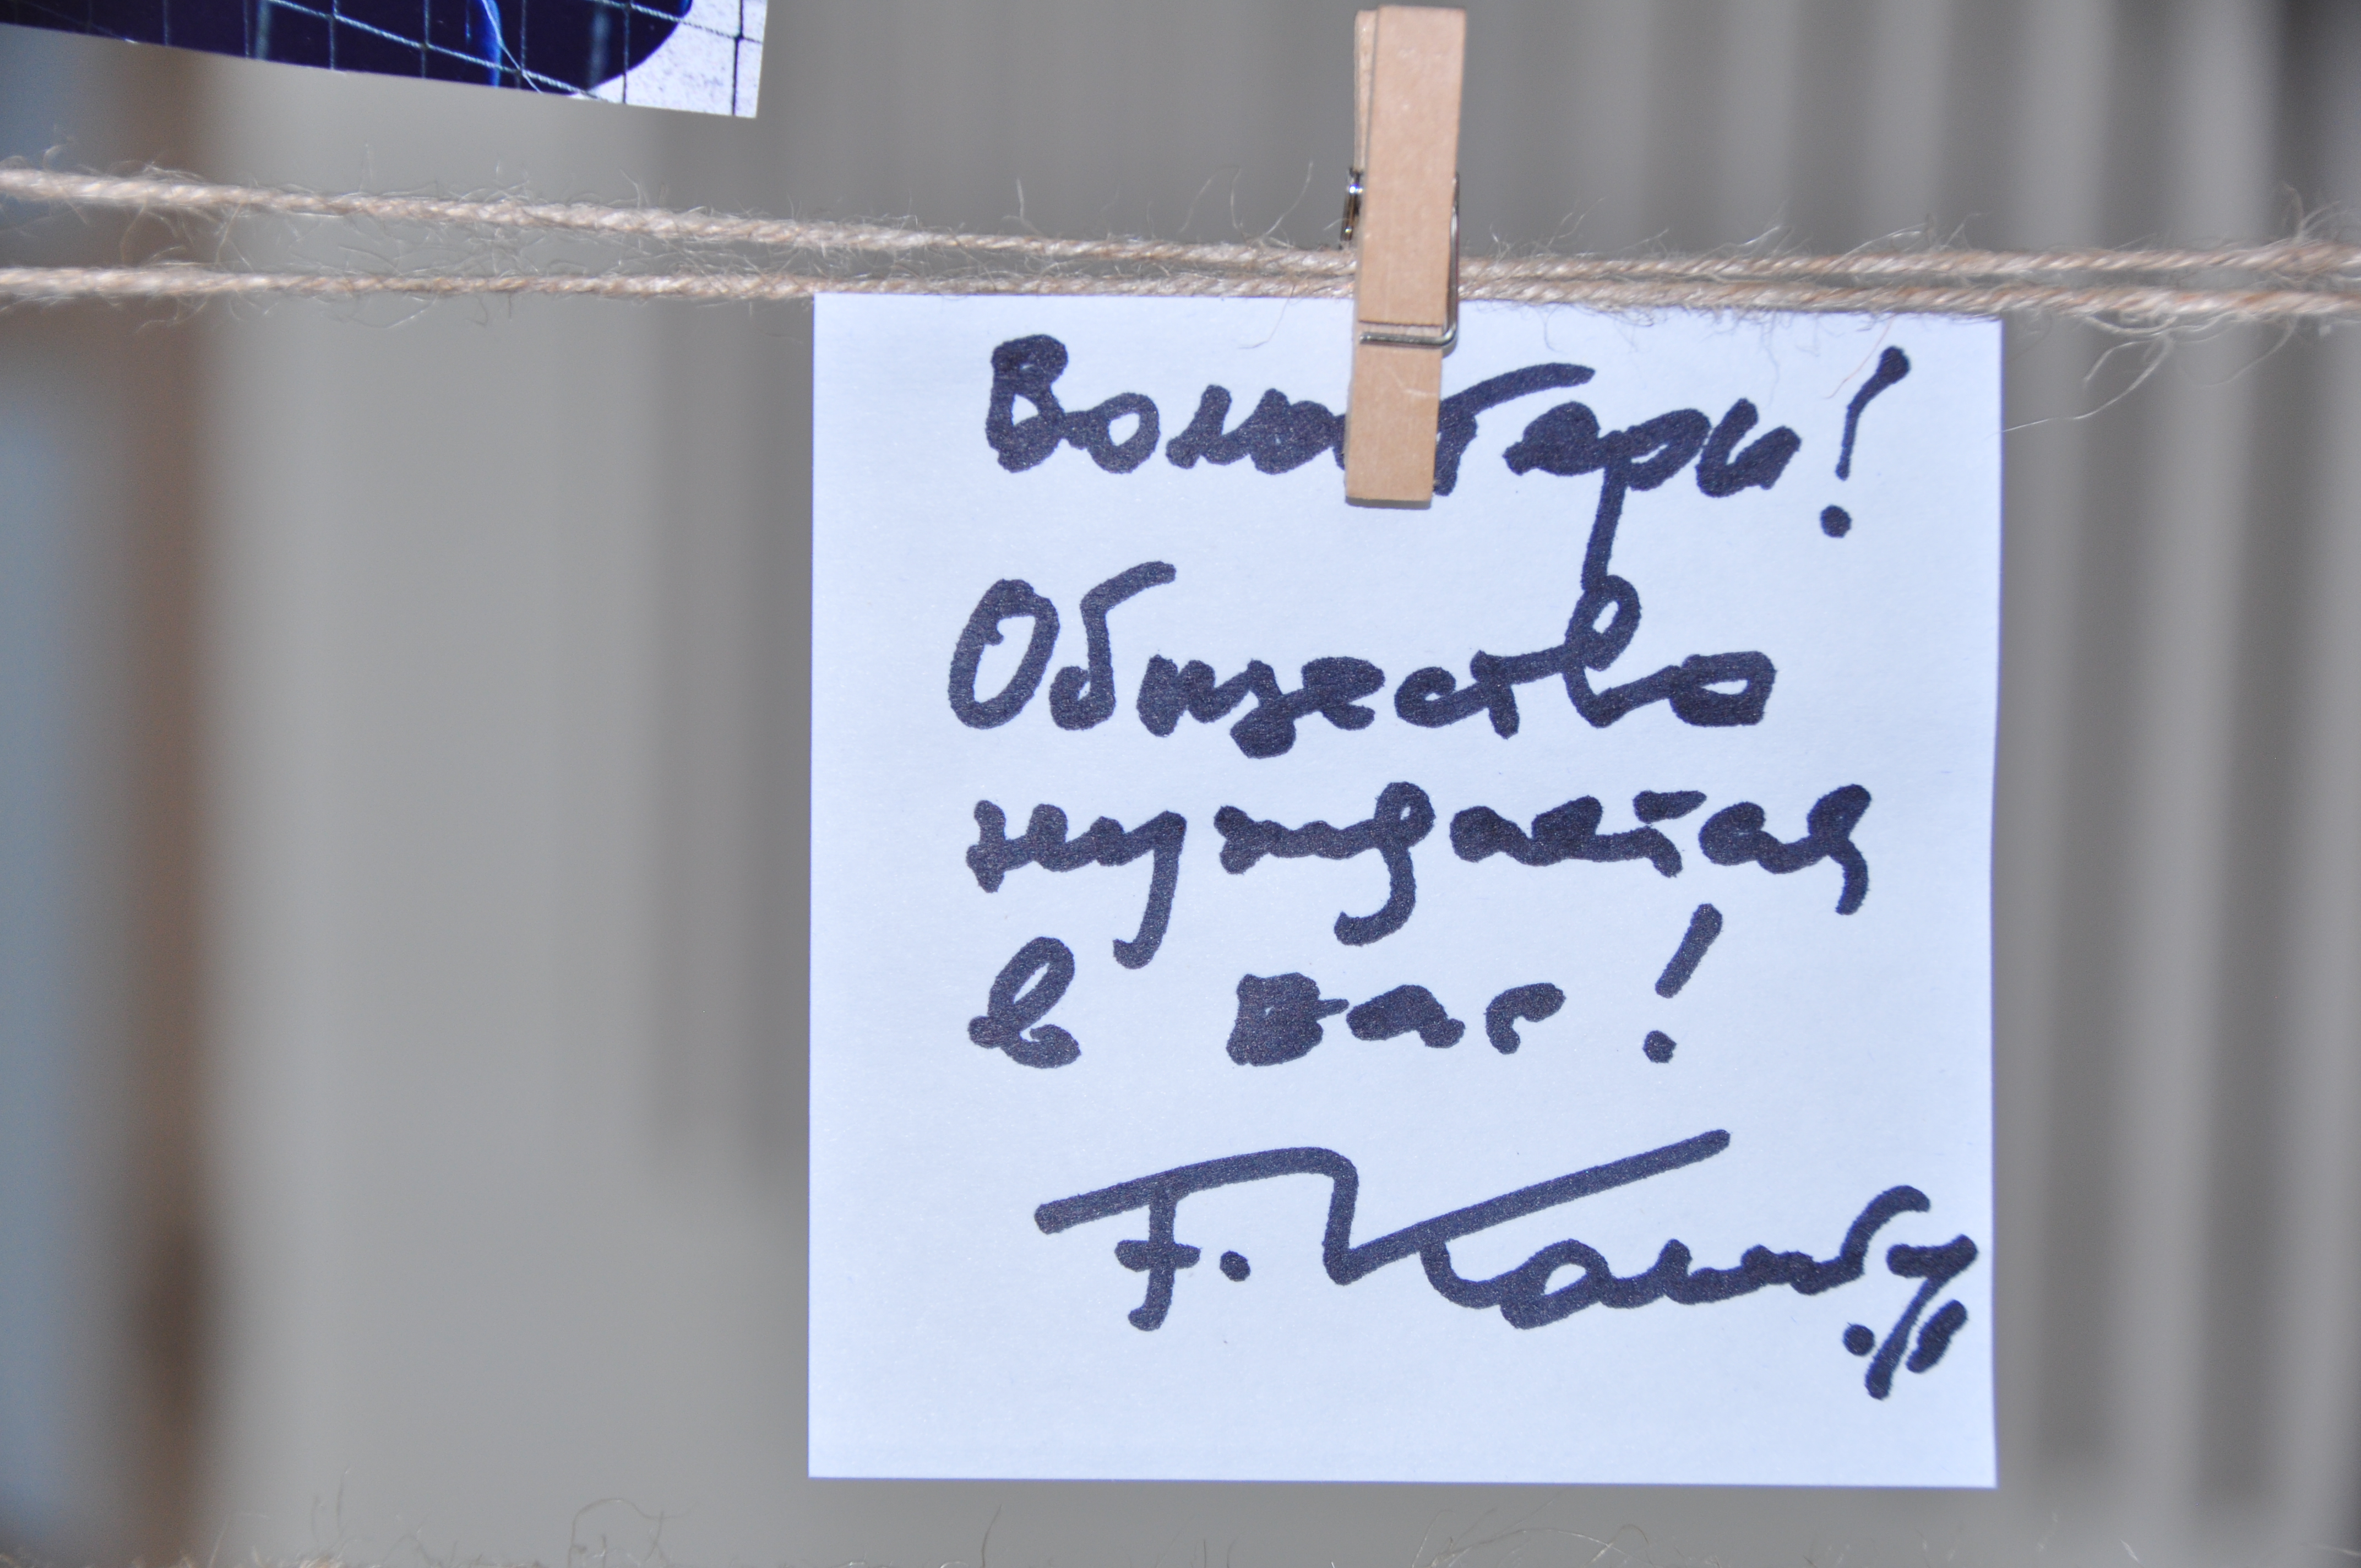 Волонтеры!
Общество
нуждается
в вас!